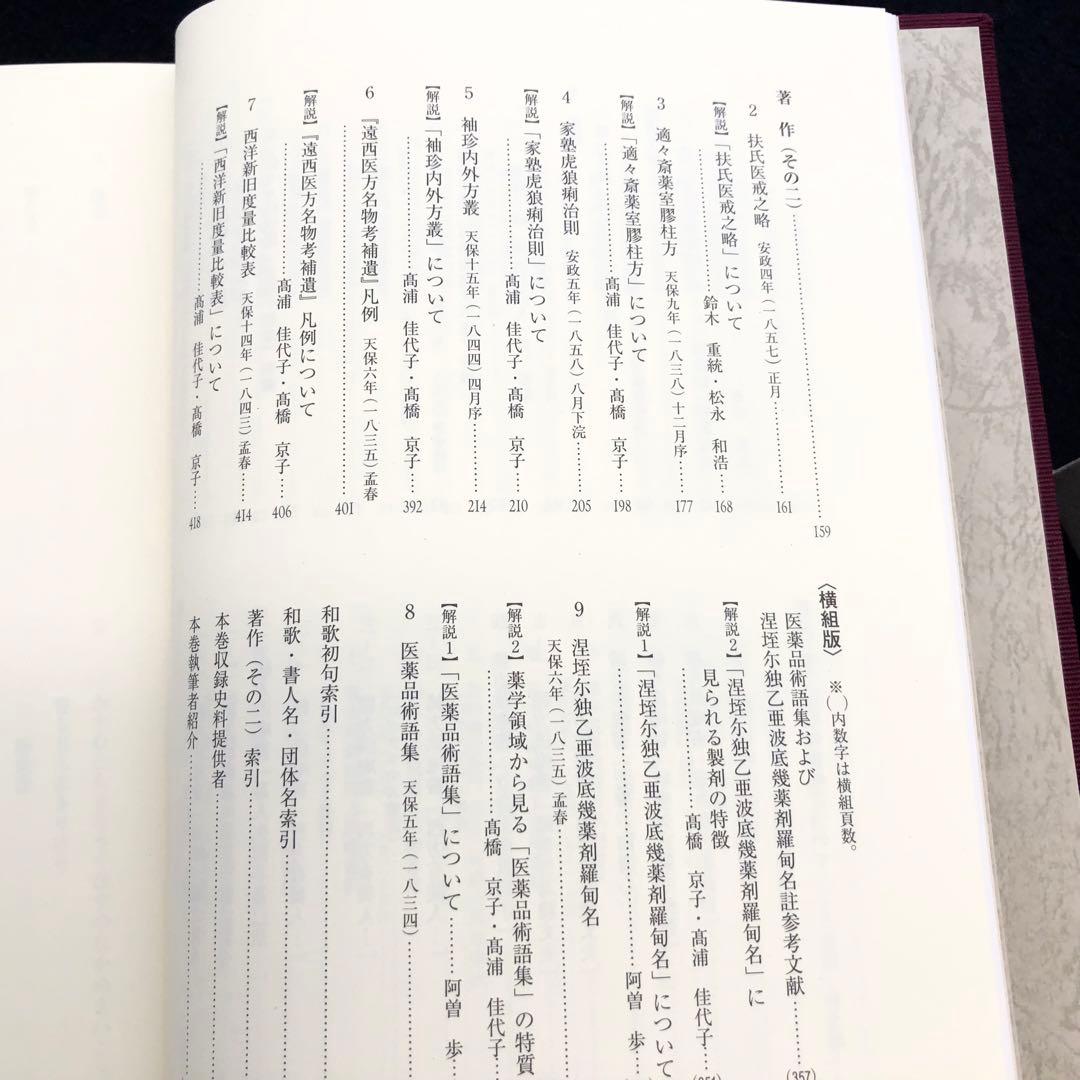 著作(その二)……159
2 扶氏医戒之略 安政四年(一八五七)正月……161
【解説】「扶氏医戒之略」について
……鈴木 重統・松永 和浩……168
3 適々斎薬室膠柱方 天保九年(一八三八)十二月序……177
【解説】「適々斎薬室膠柱方」について
……髙浦 佳代子・髙橋 京子……198
4 家塾虎狼痢治則 安政五年(一八五八)八月下浣……205
【解説】「家塾虎狼痢治則」について
……髙浦 佳代子・髙橋 京子……210
5 袖珍内外方叢 天保十五年(一八四四)四月序……214
【解説】「袖珍内外方叢」について
……髙浦 佳代子・髙橋 京子……392
6 『遠西医方名物考補遺』凡例 天保六年(一八三五)孟春
……401
【解説】『遠西医方名物考補遺』凡例について
……髙浦 佳代子・髙橋 京子……406
7 西洋新旧度量比較表 天保十四年(一八四三)孟春……414
【解説】「西洋新旧度量比較表」について
……髙浦 佳代子・髙橋 京子……418
〈横組版〉 ※( )内数字は横組頁数。
医薬品術語集および
涅垤尓独乙亜波底幾薬剤羅甸名註参考文献……(357)
【解説2】「涅垤尓独乙亜波底幾薬剤羅甸名」に
見られる製剤の特徴
……髙橋 京子・髙浦 佳代子……
【解説1】「涅垤尓独乙亜波底幾薬剤羅甸名」について
……阿曽 歩……
9 涅垤尓独乙亜波底幾薬剤羅甸名
天保六年(一八三五)孟春……
【解説2】薬学領域から見る「医薬品術語集」の特質
……髙橋 京子・髙浦 佳代子……
【解説1】「医薬品術語集」について……阿曽 歩……
8 医薬品術語集 天保五年(一八三四)……
和歌初句索引……
和歌・書人名・団体名索引……
著作(その二)索引……
本巻収録史料提供者……
本巻執筆者紹介……